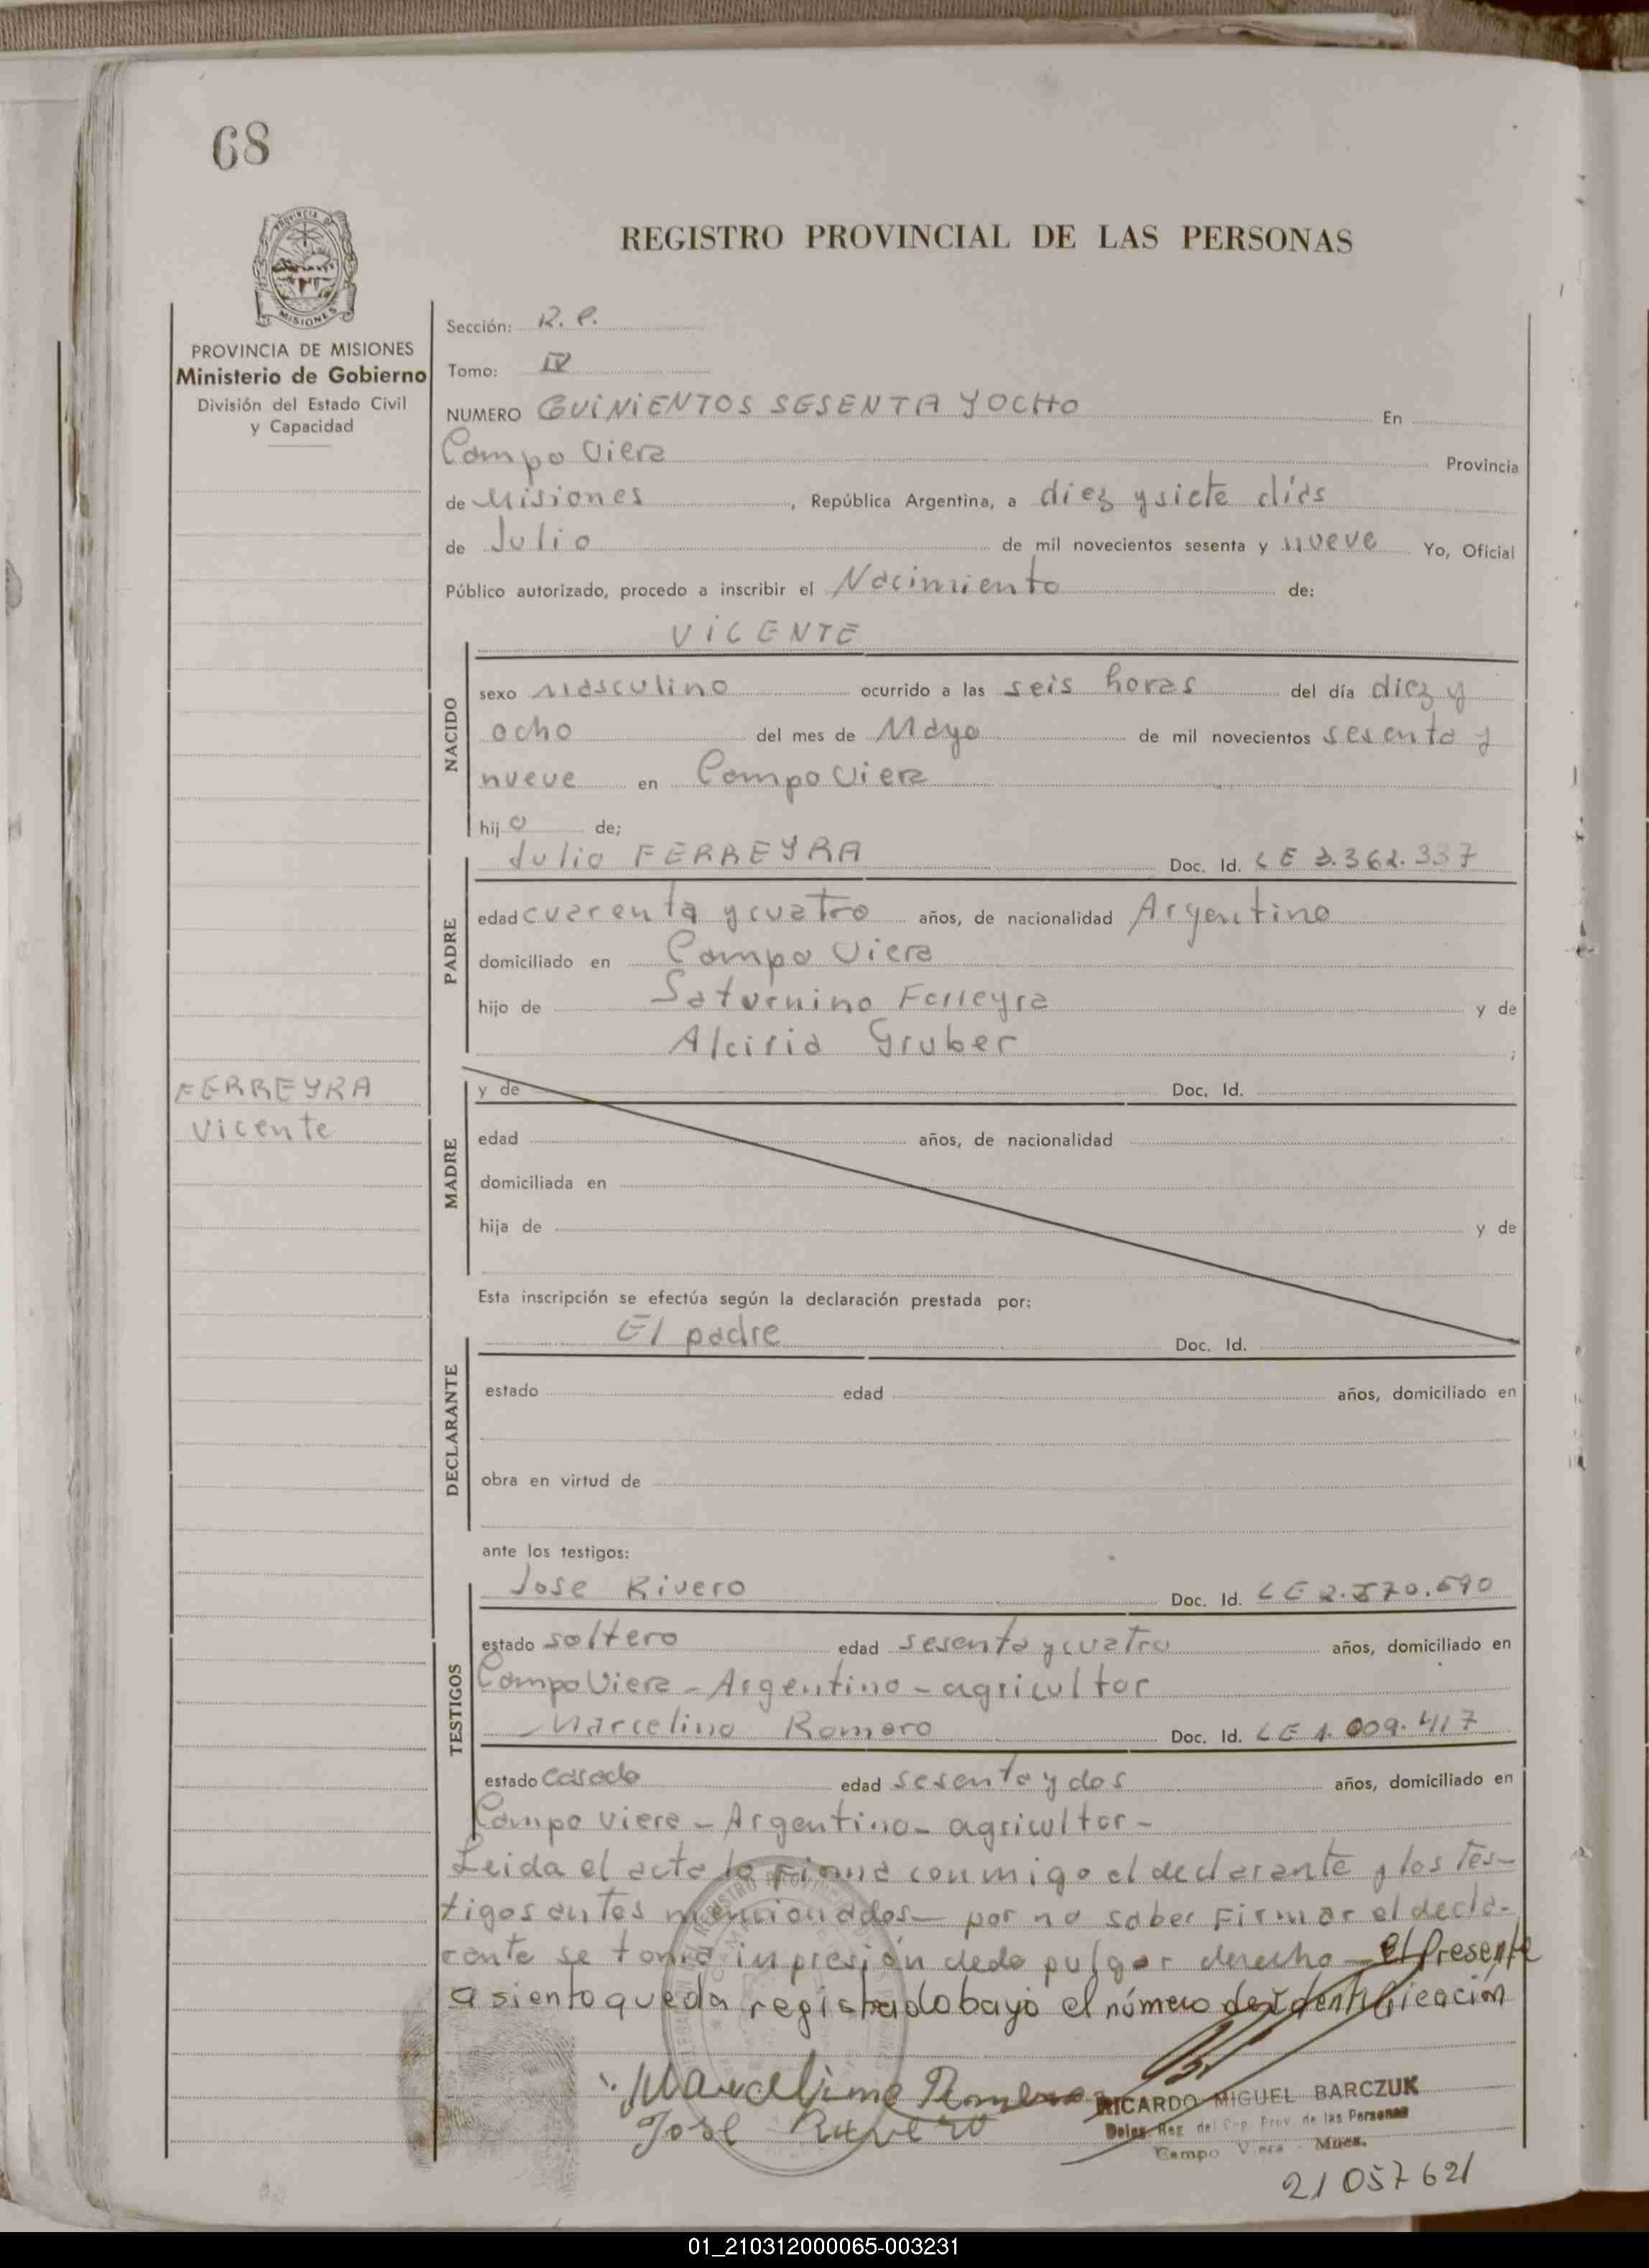 68
REGISTRO PROVINCIAL DE LAS PERSONAS
PROVINCIA DE MISIONES
Ministerio de Gobierno
División del Estado Civil
y Capacidad
Sección: R. P.
Tomo: IV
NUMERO QUINIENTOS SESENTA Y OCHO En
Campo Viera Provincia
de Misiones, República Argentina, a diez y siete días
de Julio de mil novecientos sesenta y nueve Yo, Oficial
Público autorizado, procedo a inscribir el Nacimiento de:
VICENTE
NACIDO
sexo masculino ocurrido a las seis horas del día diez y
ocho del mes de Mayo de mil novecientos sesenta y
nueve en Campo Viera
hijo de;
Julio FERREYRA Doc. Id. LE 3.362.337
PADRE
edad cuarenta y cuatro años, de nacionalidad Argentino
domiciliado en Campo Viera
hijo de Saturnino Ferreyra y de
Alciria Gruber ;
FERREYRA
Vicente
MADRE
y de Doc. Id.
edad años, de nacionalidad
domiciliada en
hija de y de
Esta inscripción se efectúa según la declaración prestada por:
DECLARANTE
El padre Doc. Id.
estado edad años, domiciliado en
obra en virtud de
ante los testigos:
TESTIGOS
Jose Rivero Doc. Id. LE
estado soltero edad sesenta y cuatro años, domiciliado en
Campo Viera - Argentino - agricultor
Marcelino Romero Doc. Id. LE 1.009.417
estado casado edad sesenta y dos años, domiciliado en
Campo Viera - Argentino - agricultor -
Leida el acta la firma conmigo el declarante y los tes-
tigos antes mencionados - por no saber firmar el decla-
rante se toma impresión dedo pulgar derecho - el Presente
asiento queda registrado bajo el número de identificación
Marcelino Romero
Jose Rivero
RICARDO MIGUEL BARCZUK
Deleg. Reg. del Prov. de las Personas
Campo Viera - Mnes.
21057621
01_210312000065-003231